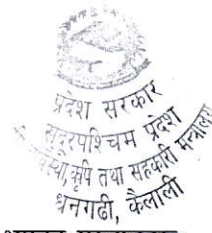 प्रदेश सरकार
सुदूरपश्चिम प्रदेश
व्यवस्था, कृषि तथा सहकारी मन्त्रालय
धनगढी, कैलाली